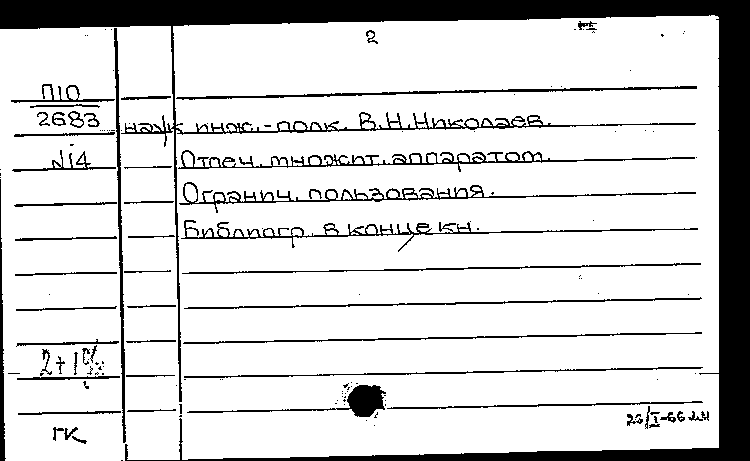 2
П10
2683
наук инж.-полк. В.Н.Николаев.
№14
Отпеч. множит. аппаратом.
Огранич. пользования.
Библиогр. в конце кн.
2+1
ГК